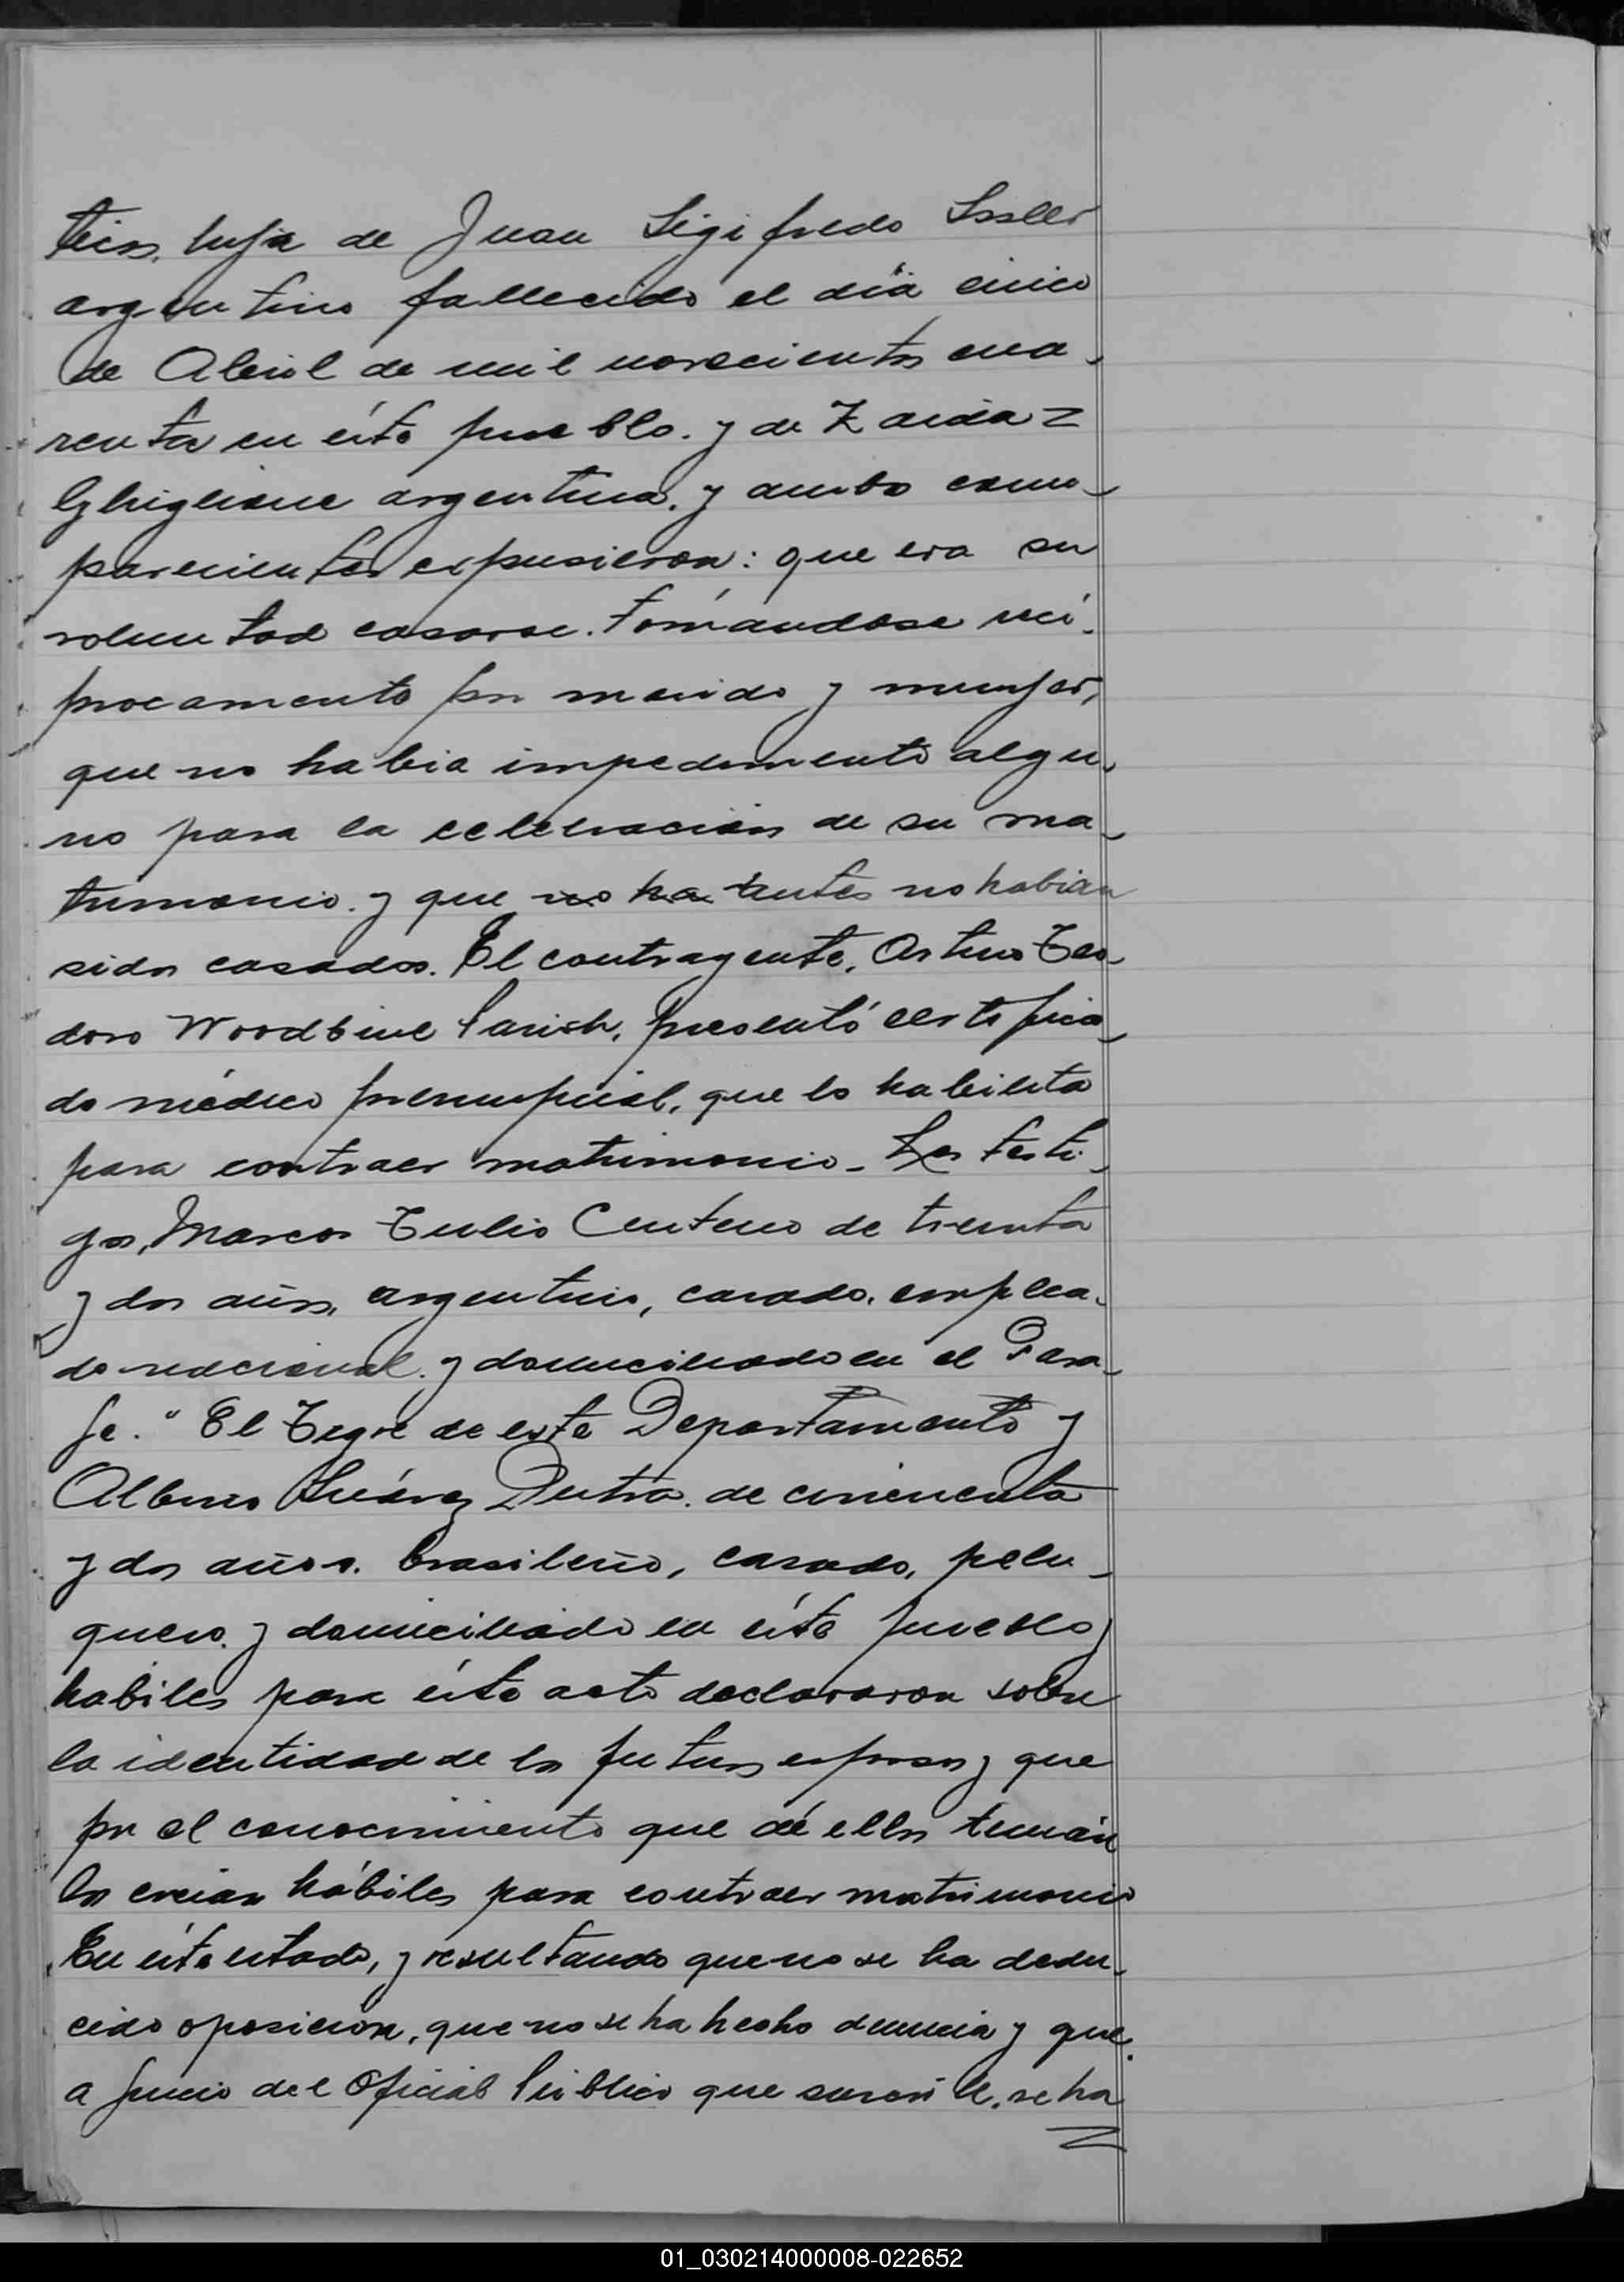 teis, hija de Juan Sigifredo Issler
argentino fallecido el día cinco
de Abril de mil novecientos cua-
renta en éste pueblo. y de Zaida =
Ghiglione argentina. y ambos com-
parecientes expusieron: que era su
voluntad casarse. tomándose recí-
procamente por marido y mujer,
que no habia impedimento algu-
no para la celebración de su ma-
trimonio. y que no ha antes no habian
sidos casados. El contrayente, Arturo Teo-
doro Woodbine Parish, presentó certifica-
do médico prenupcial, que lo habilita
para contraer matrimonio_ Los testi-
gos, Marcos Tulio Centeno de treinta
y dos años, argentino, casado, emplea-
do nacional. y domiciliado en el Para-
je. "El Tigre de este Departamento y
Albino Suárez Dutra. de cincuenta
y dos años. brasileño, casado, pelu-
quero. y domiciliado en éste pueblo,
habiles para éste acto declararon sobre
la identidad de los futuros esposos y que
por el conocimiento que dé ellos tenían
los creian hábiles para contraer matrimonio
En éste estado, y resultando que no se ha dedu-
cido oposición, que no se ha hecho denuncia y que
a juicio del Oficial Público que suscribe, se ha
01_030214000008-022652